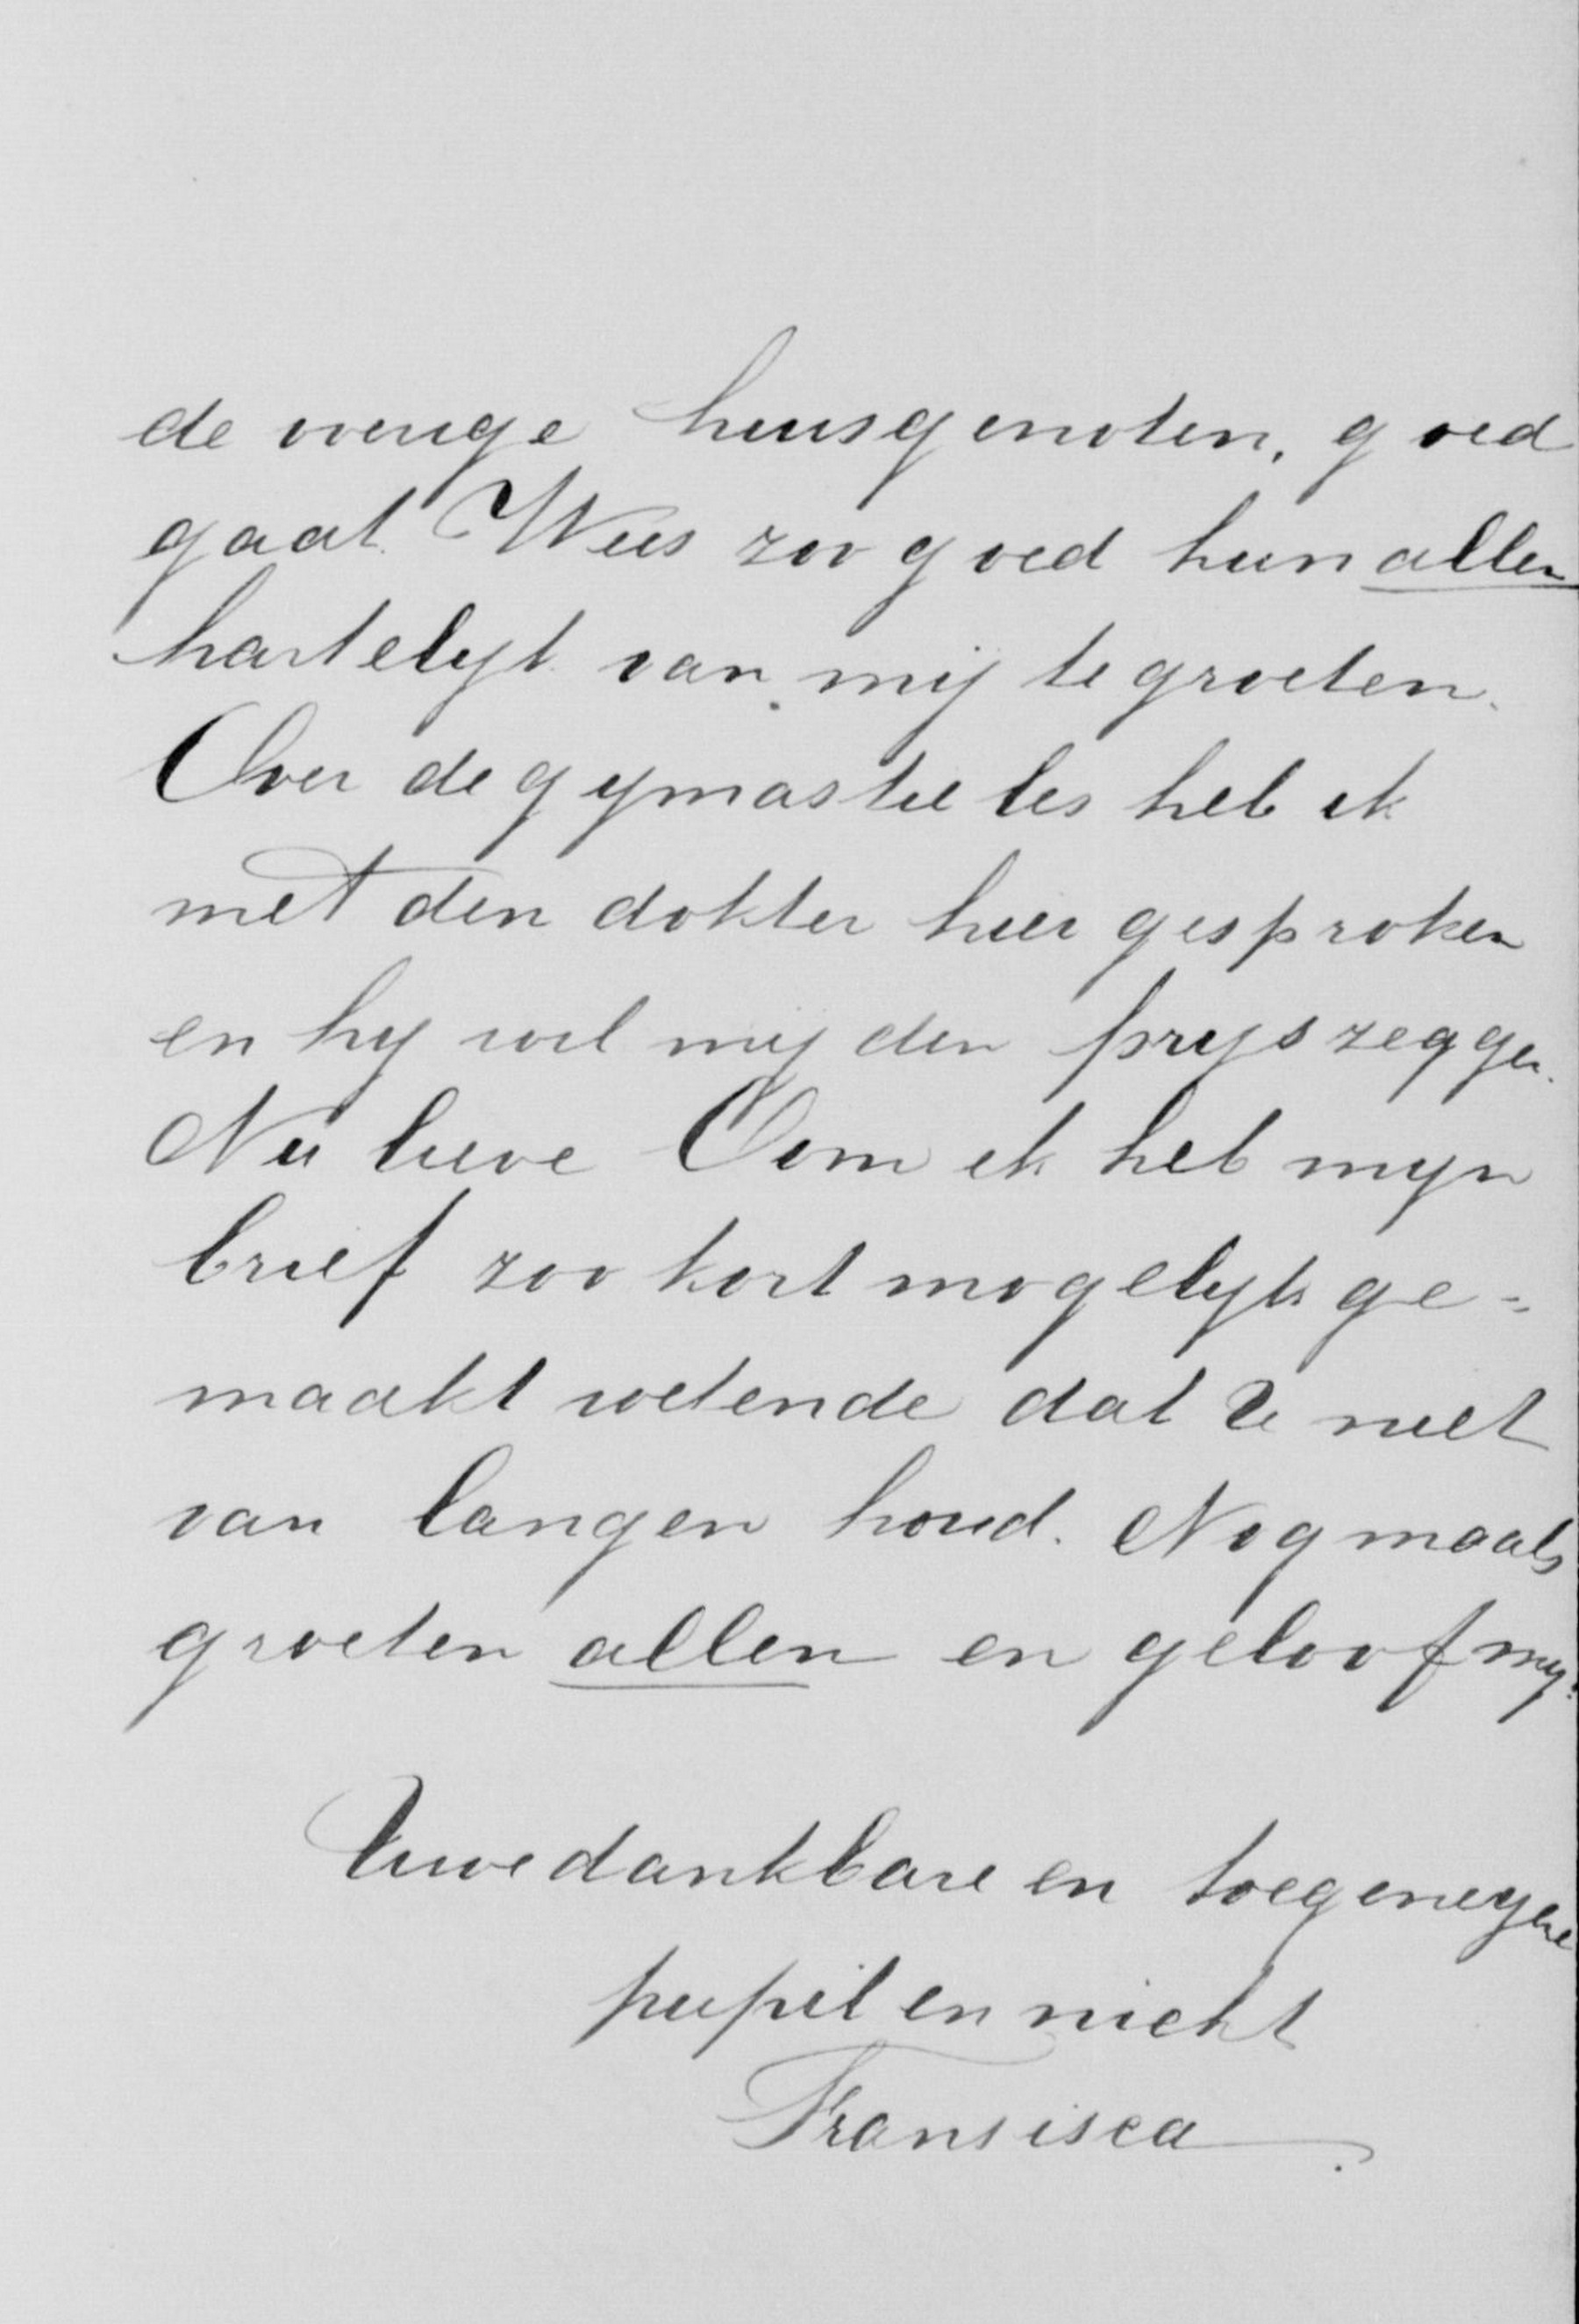 de overige huisgenoten, goed
gaat. Wees zoo goed hun allen
hartelijk van mij te groeten.
Over de gymastiek les heb ik
met den dokter hier gesproken
en hij wil mij den prijs zeggen.
Nu lieve Oom ik heb mijn
brief zoo kort mogelijk ge=
maakt wetende dat U niet
van langen houd. Nogmaals
groeten allen en geloof mij:
Uwe dankbare en toegenegene
pupil en nicht
Fransisca